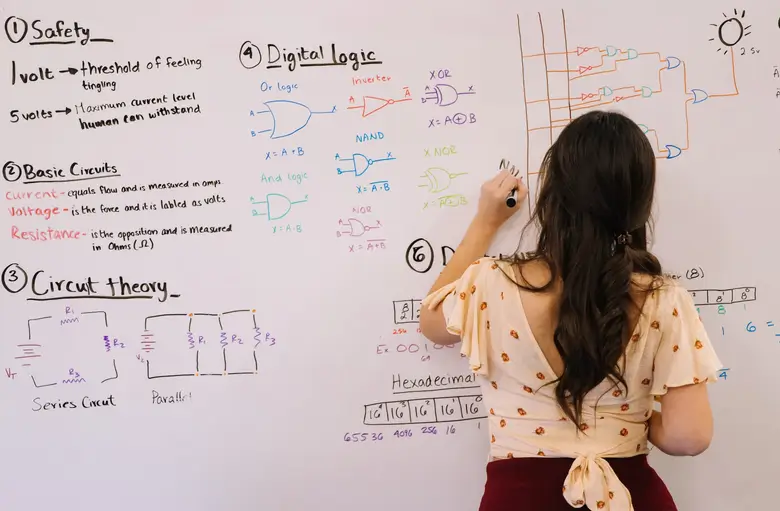 ① Safety
1 volt → threshold of feeling
tingling
5 volts → Maximum current level
human can withstand
② Basic Circuits
Current - equals flow and is measured in amps
Voltage - is the force and it is labled as volts
Resistance - is the opposition and is measured
in Ohms (Ω)
③ Circuit theory
R₁
R₂
R₃
V_T
Series Circuit
R₁
R₂
R₃
Parallel
④ Digital logic
Or logic
A
B
X
X = A + B
And logic
A
B
X
X = A · B
Inverter
A
A̅
NAND
A
B
X
X = A̅ ̅·̅ ̅B̅
NOR
A
B
X
X = A̅ ̅+̅ ̅B̅
XOR
A
B
X
X = A ⊕ B
X NOR
2.5v
⑥ D
(8)
256
Ex 001
64
8
1
6 =
4
Hexadecimal
16⁴ 16³ 16² 16¹ 16⁰
65536 4096 256 16 1